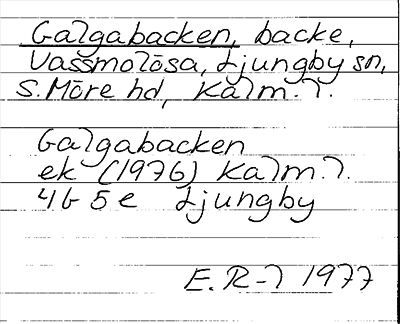 Galgabacken, backe,
Vassmolösa, Ljungby sn,
S. Möre hd, Kalm. l.
Galgabacken
ek (1976) Kalm. l.
4G 5e Ljungby
E. R-l 1977